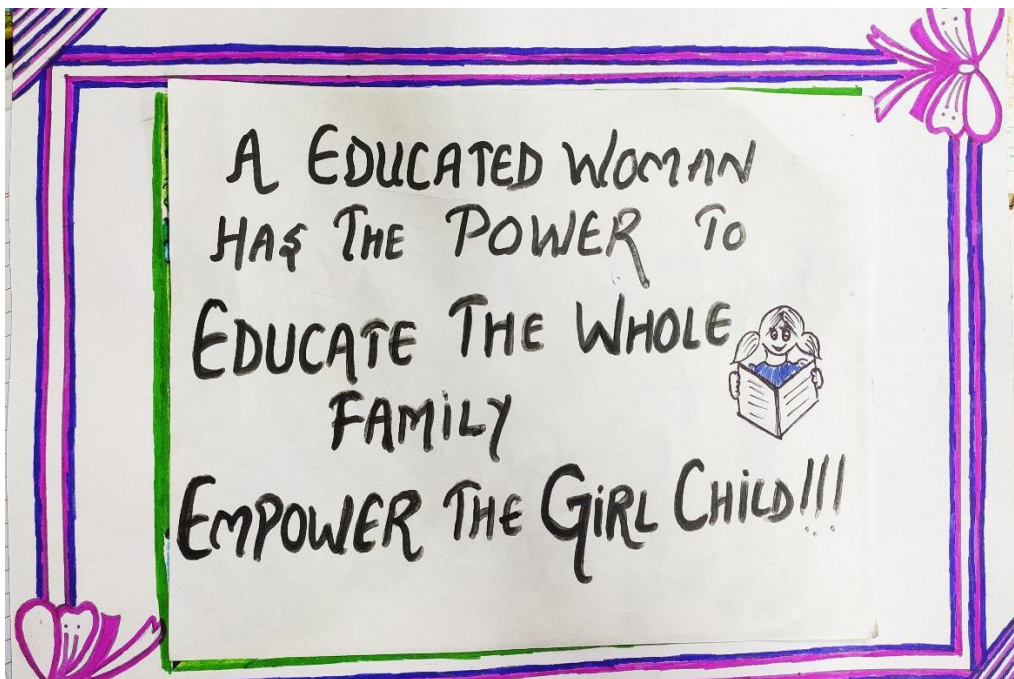 A EDUCATED WOMAN
HAS THE POWER TO
EDUCATE THE WHOLE
FAMILY
EMPOWER THE GIRL CHILD!!!